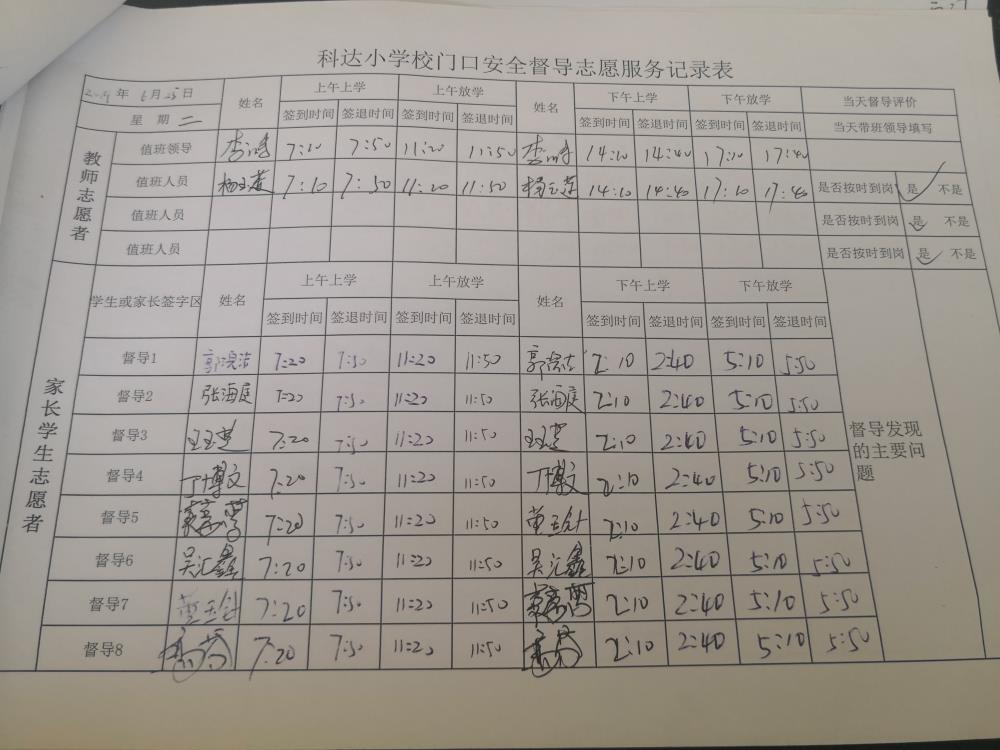 科达小学校门口安全督导志愿服务记录表
年 6月25日 姓名 上午上学 上午放学 姓名 下午上学 下午放学 当天督导评价
星期二 签到时间 签退时间 签到时间 签退时间 签到时间 签退时间 签到时间 签退时间 当天带班领导填写
教师志愿者
值班领导 李 7:10 7:50 11:20 11:50 李 14:10 14:40 17:10 17:40
值班人员 杨玉莲 7:10 7:50 11:20 11:50 杨玉莲 14:10 14:40 17:10 17:40 是否按时到岗 是 不是
值班人员 是否按时到岗 是 不是
值班人员 是否按时到岗 是 不是
学生或家长签字区 姓名 上午上学 上午放学 姓名 下午上学 下午放学
签到时间 签退时间 签到时间 签退时间 签到时间 签退时间 签到时间 签退时间
家长学生志愿者
督导1 郭浣洁 7:20 7:50 11:20 11:50 郭浣洁 2:10 2:40 5:10 5:50
督导2 张海庭 7:20 7:50 11:20 11:50 张海庭 2:10 2:40 5:10 5:50
督导3 7:20 7:50 11:20 11:50 2:10 2:40 5:10 5:50
督导4 丁博文 7:20 7:50 11:20 11:50 丁博文 2:10 2:40 5:10 5:50
督导5 7:20 7:50 11:20 11:50 黄玉针 2:10 2:40 5:10 5:50
督导6 吴汇鑫 7:20 7:50 11:20 11:50 吴汇鑫 2:10 2:40 5:10 5:50
督导7 黄玉针 7:20 7:50 11:20 11:50 2:10 2:40 5:10 5:50
督导8 7:20 7:50 11:20 11:50 2:10 2:40 5:10 5:50
督导发现
的主要问
题